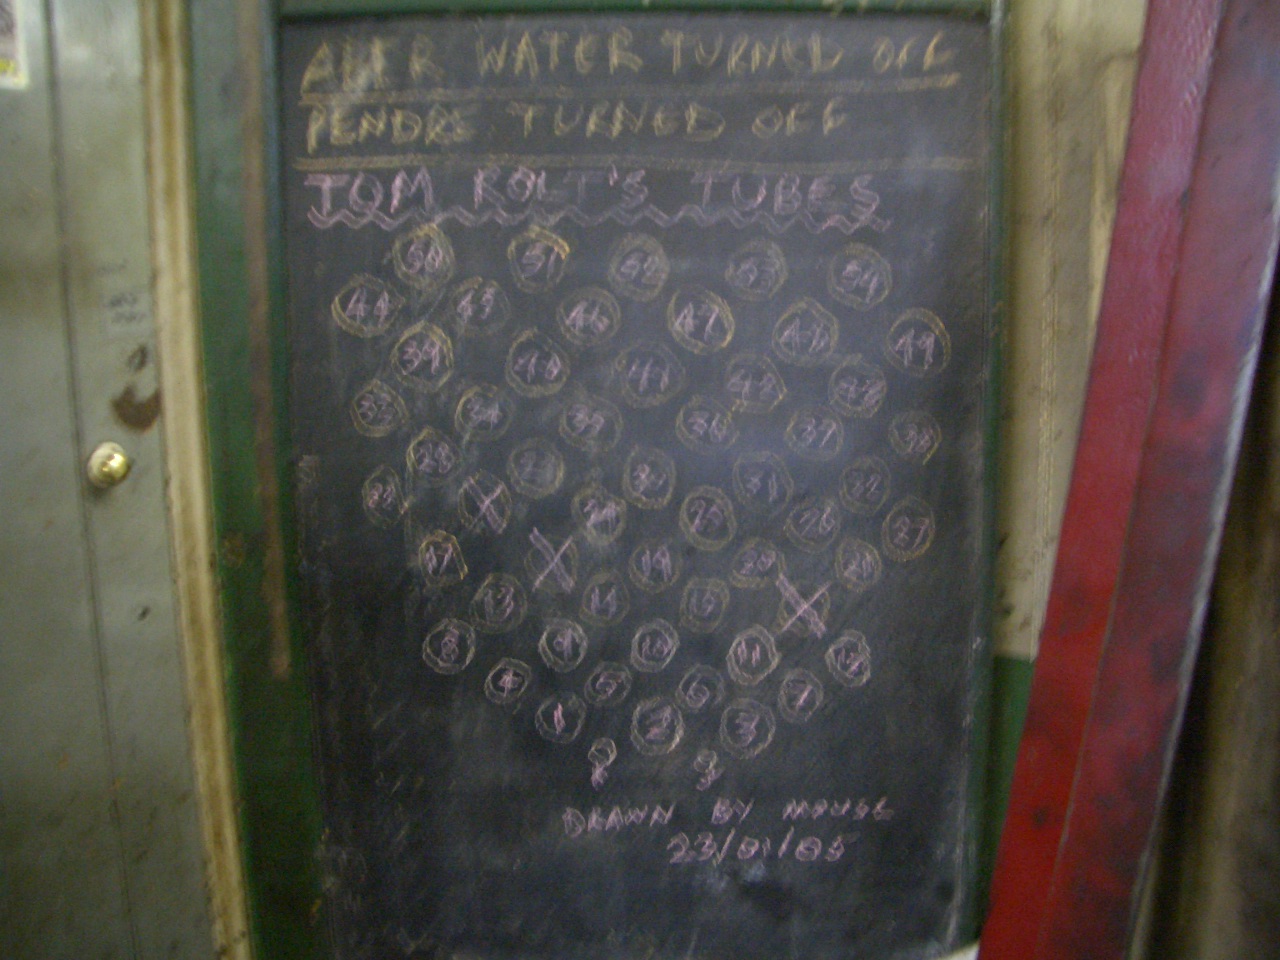 ABER WATER TURNED OFF
PENDRE TURNED OFF
TOM ROLT'S TUBES
50 51 52 53 54
44 45 46 47 48 49
39 40 41 42 43
33 34 35 36 37 38
28 29 30 31 32
22 X 24 25 26 27
17 X 19 20 21
13 14 15 X
8 9 10 11 12
4 5 6 7
1 2 3
DRAWN BY MOUSE
23/01/05